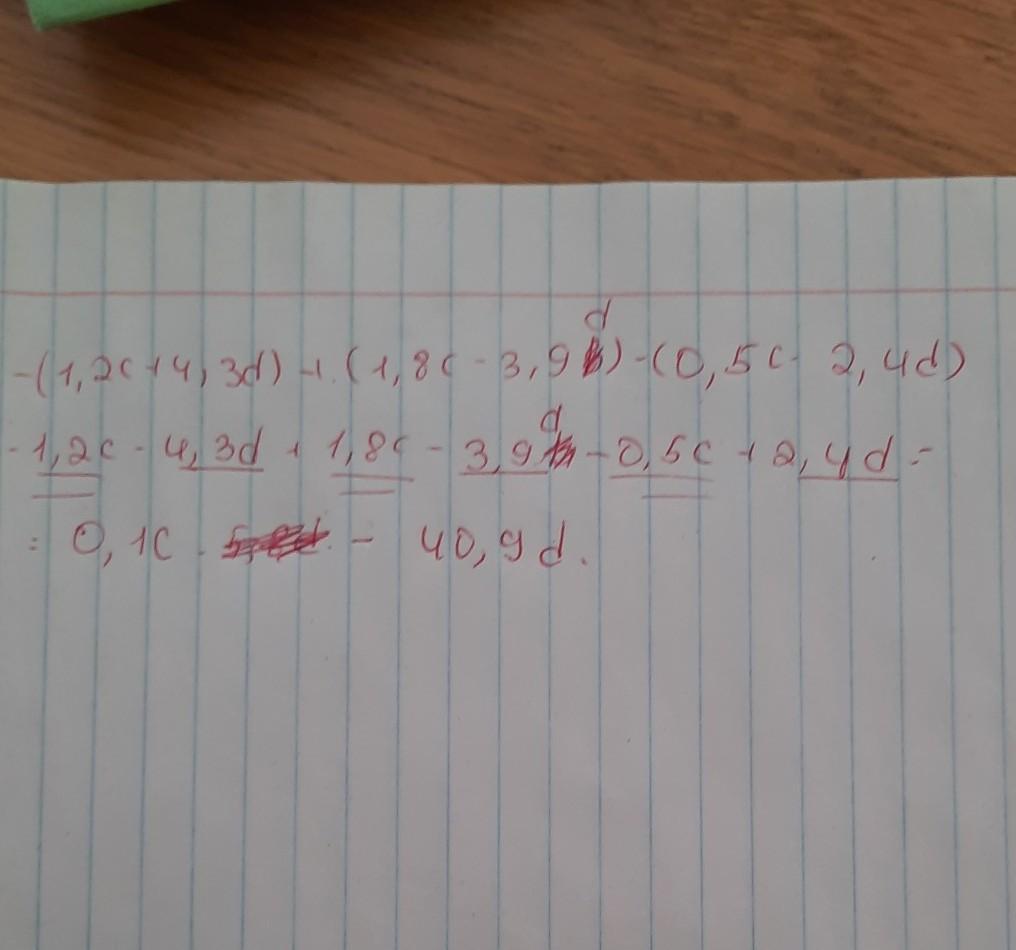 -(1,2c+4,3d)+(1,8c-3,9d)-(0,5c-2,4d)
-1,2c-4,3d+1,8c-3,9d-0,5c+2,4d=
=0,1c - 40,9d.